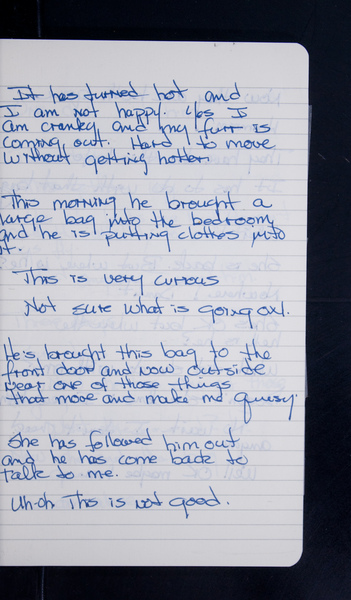 It has turned hot and
I am not happy. Yes I
am cranky and my furr is
coming out. Hard to move
without getting hotter.
This morning he brought a
large bag into the bedroom
and he is putting clothes into
it.
This is very curious
Not sure what is going on.
He's brought this bag to the
front door and now outside
near one of those things
that move and make me queasy.
She has followed him out
and he has come back to
talk to me.
Uh-oh This is not good.